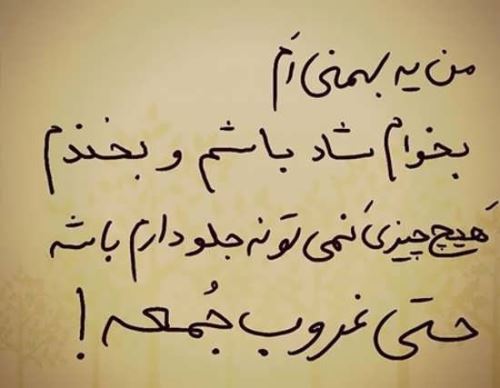 من یه بهمنی اَم
بخوام شاد باشم و بخندم
هَیچ چیزیَ نمی تونه جلودارم باشه
حتی غروب جُمعه !